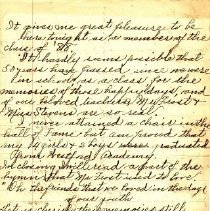 It gives me great pleasure to be
here tonight as a member of the
class of '88.
It hardly seems possible that
50 years have passed since we were
in school as a class for the
memories of those happy days, and
of our beloved teachers, Mr. Frost &
Miss are so real.
I never attained a chair in the
Hall of Fame but am proud that
my 4 girls & 2 boys were graduated
from Academy.
In closing I will read a part of the
hymn that Mr. Frost used to love.
Oh the friends that we loved in the days
of our youth
Let us cherish the memories till